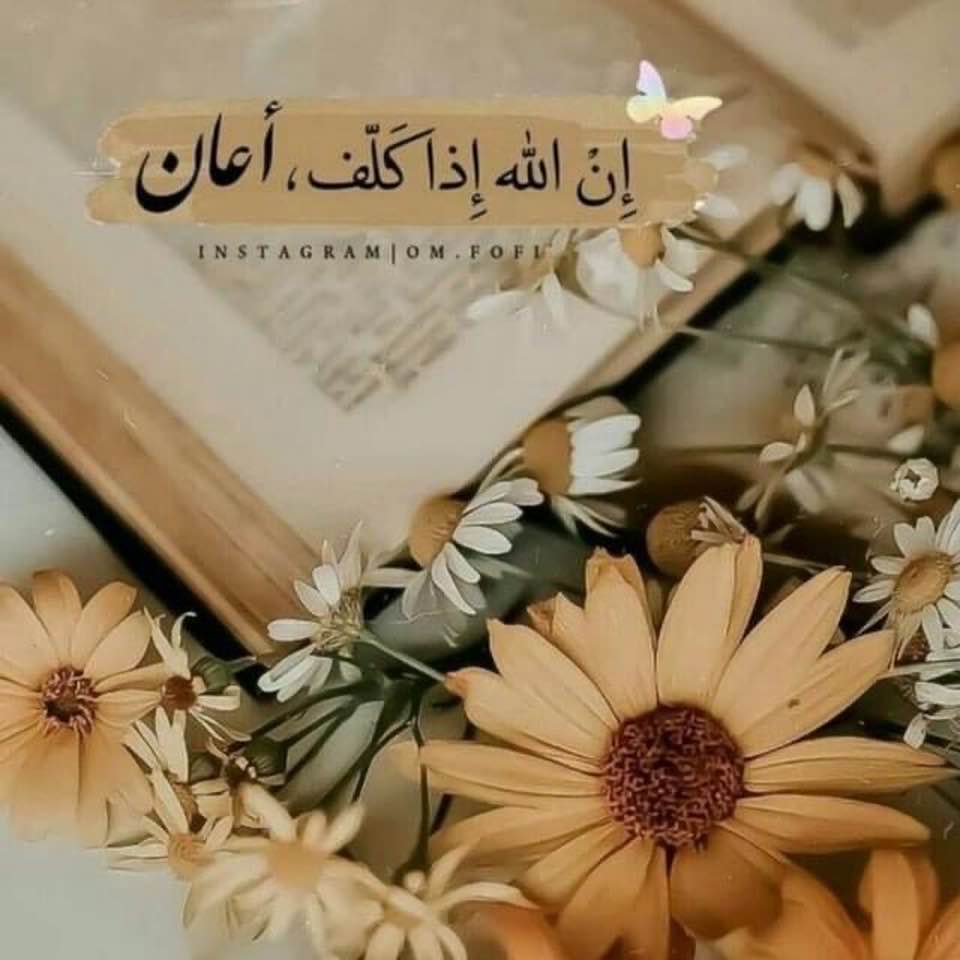 إِنْ الله إِذا كَلَّف، أعان
INSTAGRAM|OM.FOFI